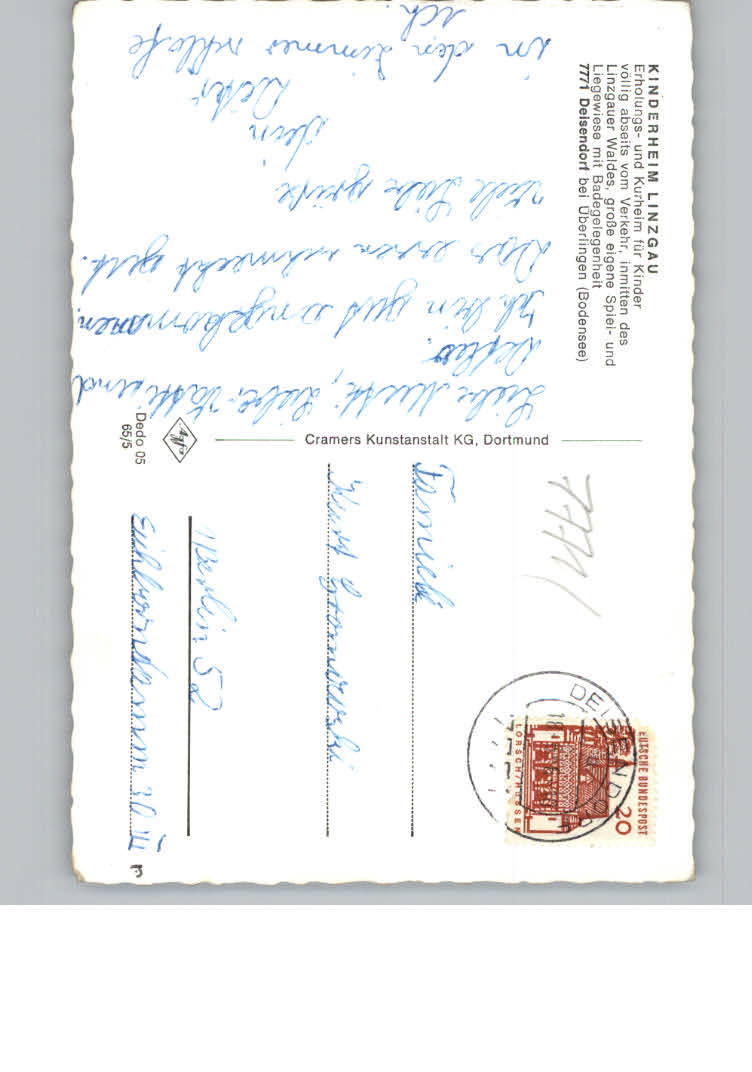 KINDERHEIM LINZGAU
Erholungs- und Kurheim für Kinder
völlig abseits vom Verkehr, inmitten des
Linzgauer Waldes, große eigene Spiel- und
Liegewiese mit Badegelegenheit
7771 Deisendorf bei Überlingen (Bodensee)
Liebe Mutti, Lieber Vatti und
Detlev.
Ich bin gut angekommen.
Das essen schmeckt gut.
Viele Liebe grüße
dein
in den Zimmer schlafe
ich.
Cramers Kunstanstalt KG, Dortmund
Agfa
Dedo 05
65/5
7771
Familie
Kurt
1 Berlin 52
30
DEISENDORF
18
DEUTSCHE BUNDESPOST
20
LORSCH/HESSEN